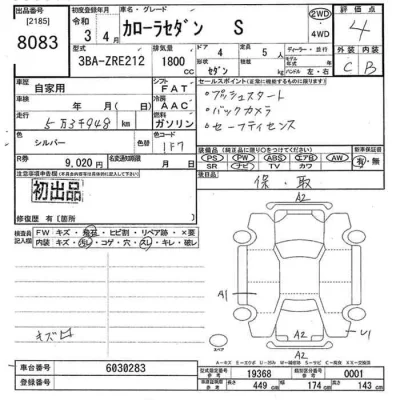 出品番号 初度登録年月 車名・グレード 評価点
[2185] 令和 3年 4月 カローラセダン S 2WD 4WD 4
8083
型式 排気量 ドア 定員 ディーラー・並行 外装 内装
3BA-ZRE212 1800 CC 4 5人 C B
セダン ハンドル 左・右
車歴 シフト セールスポイント
自家用 FAT ・プッシュスタート
車検 冷房 ・バックカメラ
年 月( 日) AAC ・セーフティセンス
走行 燃料
5万3千948 km ガソリン
色 色コード
シルバー 色替 1F7
装備品(純正品に限り○をつけてください)
R券 9,020円 名変期限 月 日 PS PW ABS エアB AW 有・無
SR ナビ TV カワ
注意事項申告欄 後日品
初出品 保・取
修復歴 有(箇所
A2
検査員記入欄 FW キズ・飛石・ヒビ割・リペア跡・×要
内装 キズ・汚レ・コゲ・穴・スレ・キレ・無
A1
U1
キズ
スペア
A2
A2
車台番号 6030283
登録番号
型式指定番号 19368 類別区分番号 0001
長さ 449 cm 幅 174 cm 高さ 143 cm